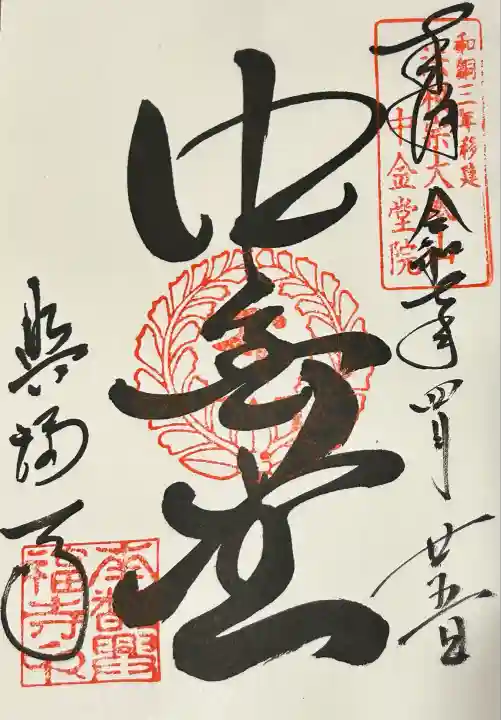 奉拝 令和七年四月廿五日
和銅三年移建
法相宗大本山
中金堂院
中金堂
興福寺
南都興
福寺印